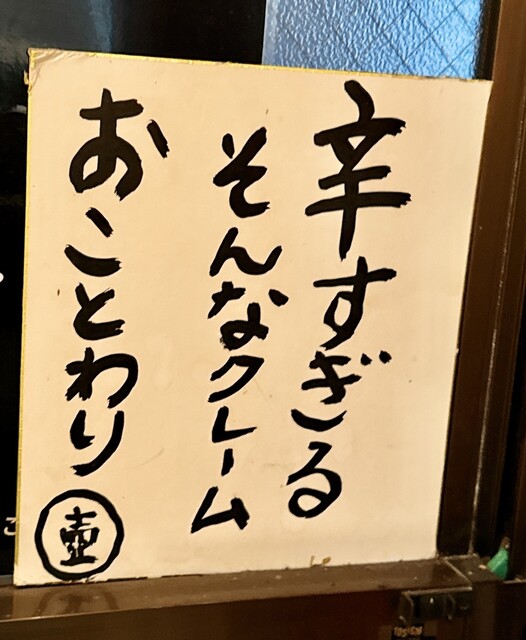 辛すぎる
そんなクレーム
おことわり
壺